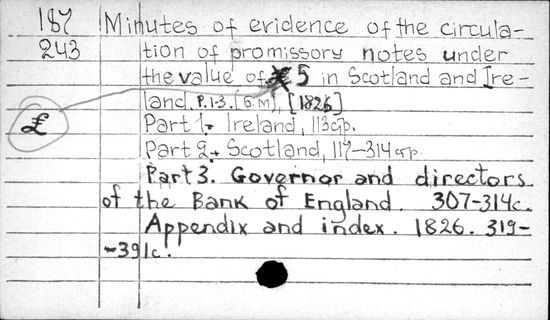 187 Minutes of evidence of the circula-
243 tion of promissory notes under
the value of £5 in Scotland and Ire-
land. P.1-3. [1826]
£
Part 1. Ireland, 113 стр.
Part 2. Scotland, 117-314 стр.
Part 3. Governor and directors
of the Bank of England. 307-314c.
Appendix and index. 1826. 319-
-391c.